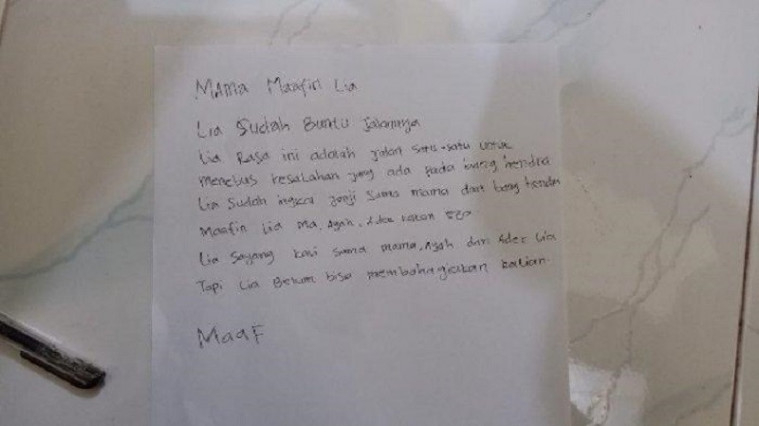 Mama Maafin Lia
Lia Sudah Buntu Jalannya
Lia Rasa ini adalah jalan satu-satu untuk
menebus kesalahan yang ada pada bang hendra
Lia Sudah ingkar janji sama mama dan bang hendra
Maafin Lia Ma, Ayah,
Lia Sayang kali sama mama, Ayah dan Adek Lia
Tapi Lia Belum bisa membahagiakan kalian.
Maaf